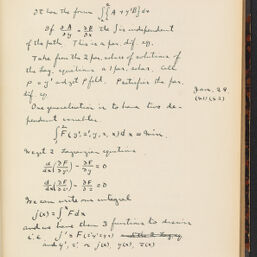 It has the form ∫₁² {A + y'B} dx
If ∂A/∂y = ∂B/∂x the ∫ is independent
of the path. This is a par. eq.
Take from the 2 par. class of solutions of
the Lag. equations a 1 par. class. Call
p = y' and get P field. P satisfies the par.
dif. eq.
One generalization is to have two de-
pendent variables.
∫₁² F(y', z', y, z, x) dx = Min.
We get 2 Lagrangian equations
d/dx(∂F/∂y') - ∂F/∂y = 0
d/dx(∂F/∂z') - ∂F/∂z = 0
We can write our integral
j(x) = ∫ˣ F dx
and we have then 3 functions to
i.e. j' = F(z' y' y z x)
and y', z' or j(x), y(x), z(x)